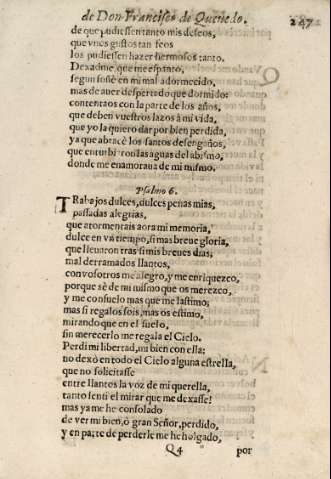 de Don Francisco de Queuedo. 247
de que pudiessen tanto mis deseos,
que vnos gustos tan feos
los pudiessen hazer hermosos tanto.
Dexadme, que me espanto,
segun soñè en mi mal adormecido,
mas de auer despertado que dormido:
contentaos con la parte de los años,
que deben vuestros lazos à mi vida,
que yo la quiero dar por bien perdida,
ya que abracè los santos desengaños,
que enturbiaron las aguas del abismo,
donde me enamoraua de mi mismo.
Psalmo 6.
TRabajos dulces, dulces penas mias,
passadas alegrias,
que atormentais aora mi memoria,
dulce en vn tiempo, si mas breue gloria,
que lleuaron tras si mis breues dias;
mal derramados llantos,
con vosotros me alegro, y me enriquezco,
porque sè de mi mismo que os merezco,
y me consuelo mas que me lastimo;
mas si regalos sois, mas os estimo,
mirando que en el suelo,
sin merecerlo me regala el Cielo.
Perdi mi libertad, mi bien con ella;
no dexò en todo el Cielo alguna estrella,
que no solicitasse
entre llantos la voz de mi querella,
tanto senti el mirar que me dexasse!
mas ya me he consolado
de ver mi bien, ò gran Señor, perdido,
y en parte de perderle me he holgado,
Q4 por